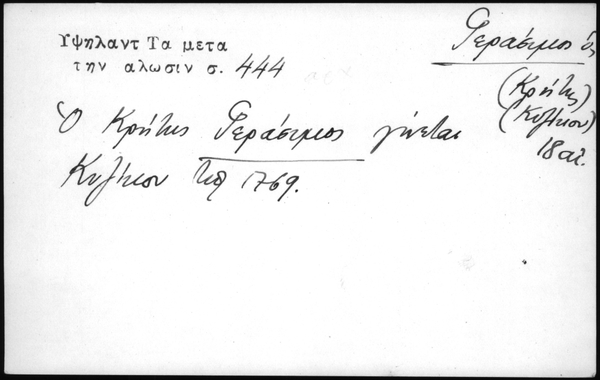 Υψηλαντ Τα μετα
την αλωσιν σ. 444
Γεράσιμος ὁ
(Κρήτης)
(Κυζίκου)
18 αἰ.
Ὁ Κρήτης Γεράσιμος γίνεται
Κυζίκου τῷ 1769.